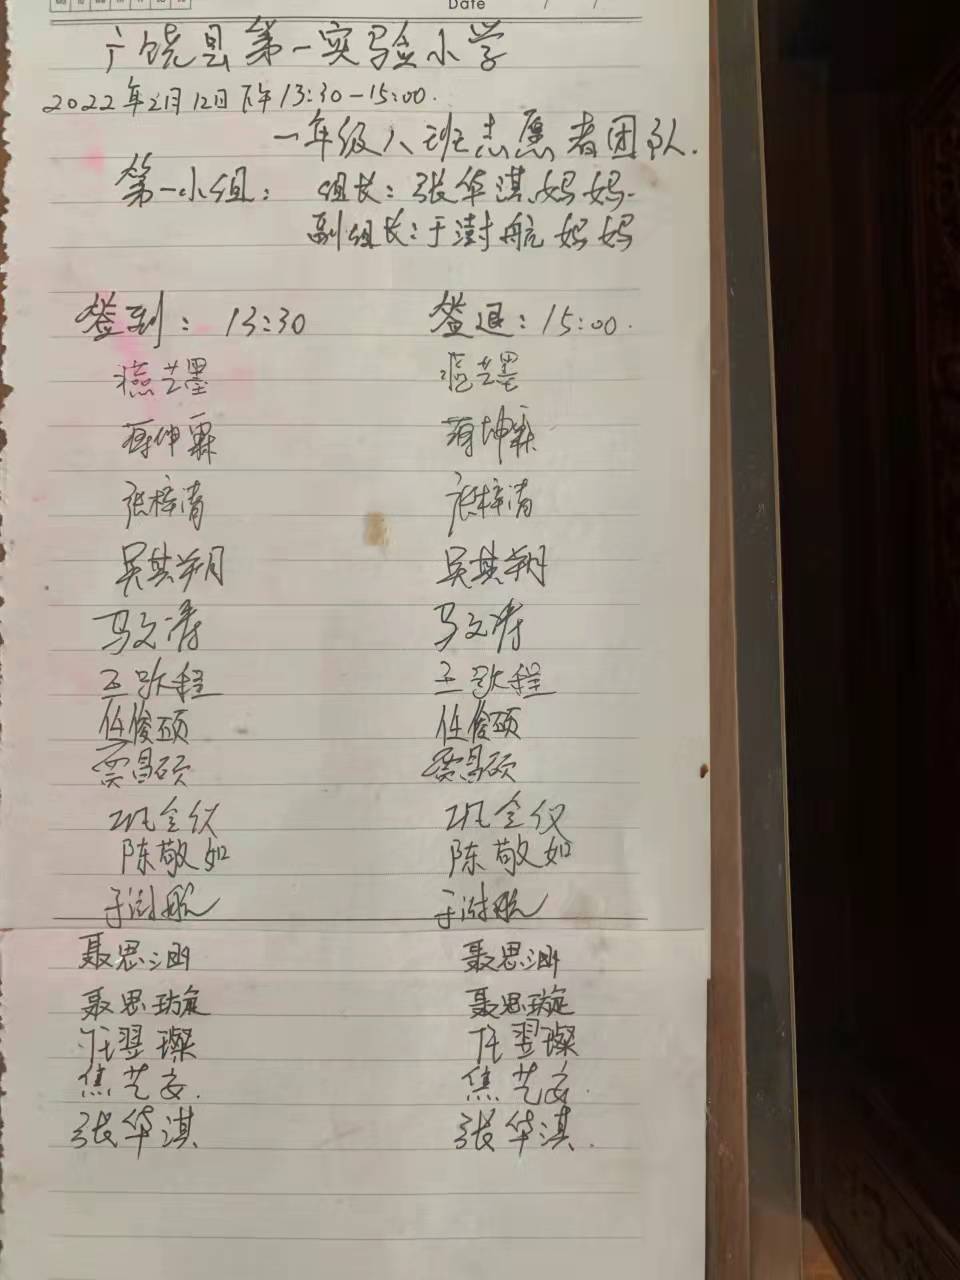 Date / /
广饶县第一实验小学
2022年2月12日下午13:30-15:00.
一年级八班志愿者团队.
第一小组： 组长：张华淇妈妈.
副组长：于澍航妈妈
签到：13:30 签退：15:00.
燕艺墨 燕艺墨
蒋坤霖 蒋坤霖
张梓清 张梓清
吴其朔 吴其朔
马文涛 马文涛
王歆程 王歆程
任俊硕 任俊硕
贾昌硕 贾昌硕
巩令仪 巩令仪
陈敬如 陈敬如
于澍航 于澍航
聂思涵 聂思涵
聂思璇 聂思璇
任翌璨 任翌璨
焦艺安. 焦艺安.
张华淇 张华淇.